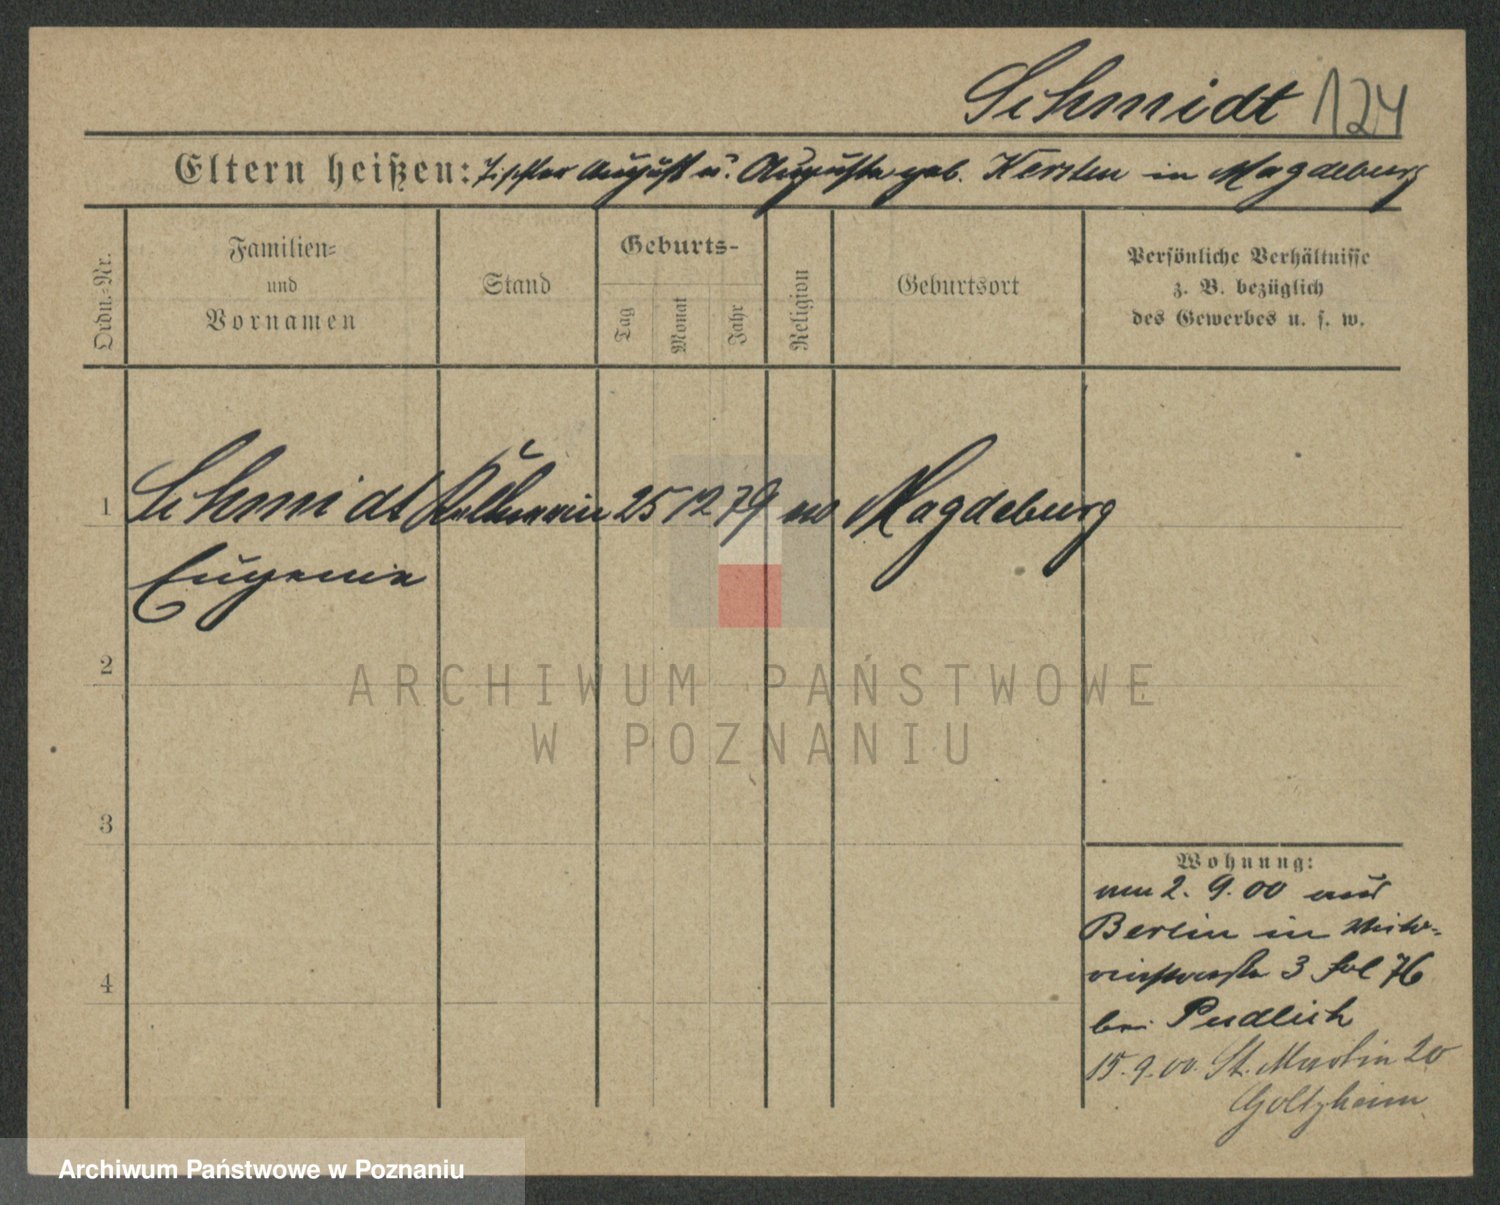 Schmidt 124
Eltern heißen: Tischler August u. Auguste geb. Kersten in Magdeburg
Ordn.-Nr.
Familien- und Vornamen
Stand
Geburts-
Tag
Monat
Jahr
Religion
Geburtsort
Persönliche Verhältnisse
z. B. bezüglich
des Gewerbes u. s. w.
1 Schmidt Kellnerin 25 12 79 ev Magdeburg
Eugenie
2
3
4
Wohnung:
am 2. 9. 00 aus
Berlin in
3 bei Pudlich
15. 9. 00. St. Martin 20
Goltzheim
ARCHIWUM PAŃSTWOWE
W POZNANIU
Archiwum Państwowe w Poznaniu